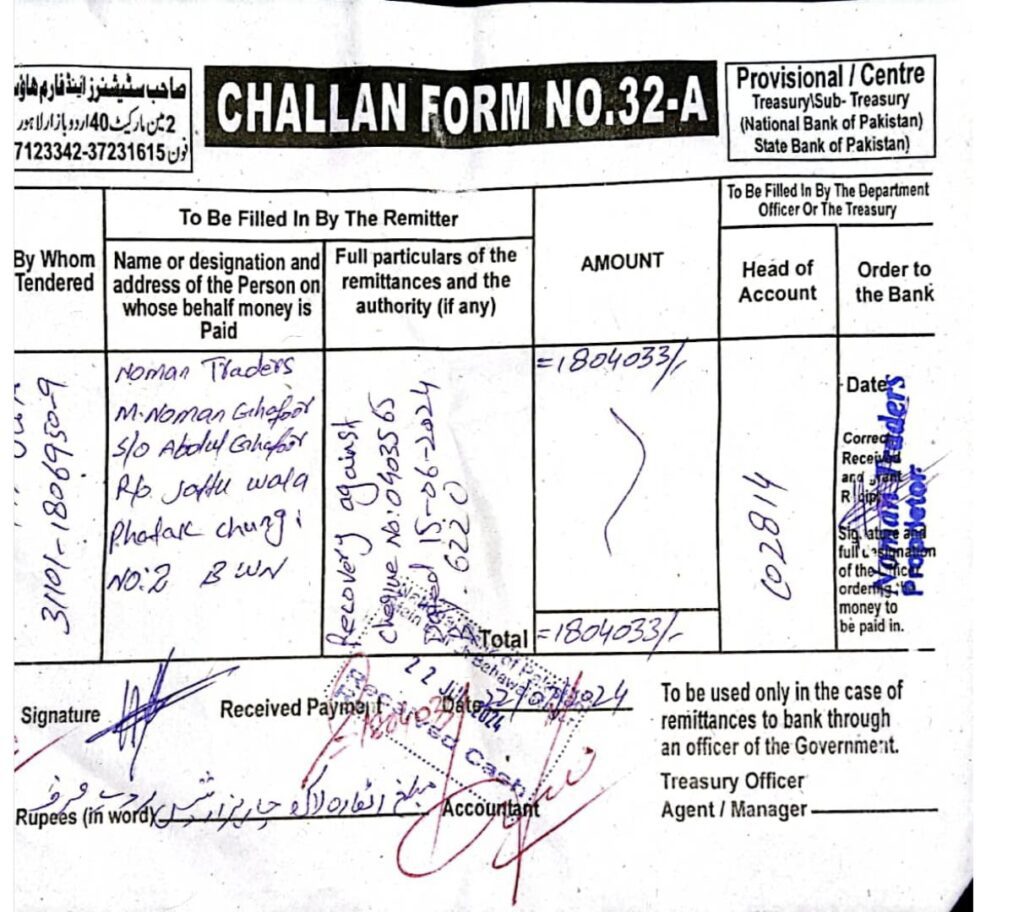 صاحب سٹیشنرز اینڈ فارم ھاؤس
2مین مارکیٹ 40 اردو بازار لاہور
فون 7123342-37231615
CHALLAN FORM NO.32-A
Provisional / Centre
Treasury\Sub- Treasury
(National Bank of Pakistan)
State Bank of Pakistan)
To Be Filled In By The Remitter
AMOUNT
To Be Filled In By The Department
Officer Or The Treasury
By Whom
Tendered
Name or designation and
address of the Person on
whose behalf money is
Paid
Full particulars of the
remittances and the
authority (if any)
Head of
Account
Order to
the Bank
31101-1806950-9
Noman Traders
M. Noman Ghafoor
S/o Abdul Ghafoor
R/o
wala
Phatak chungi
NO:2 BWN
Recovery against
cheque No: 0403565
Dated 15-06-2024
=1804033/-
C02814
Date
Correct
Received
and
Signature and
full designation
of the Officer
ordering the
money to
be paid in.
Noman Traders
Proprietor
Total
=1804033/-
Signature
Received Payment
Date 22/07/2024
22
2024
Received Cash
To be used only in the case of
remittances to bank through
an officer of the Government.
Treasury Officer
Agent / Manager
Rupees (in word) مبلغ اٹھارہ لاکھ چار ہزار
Accountant